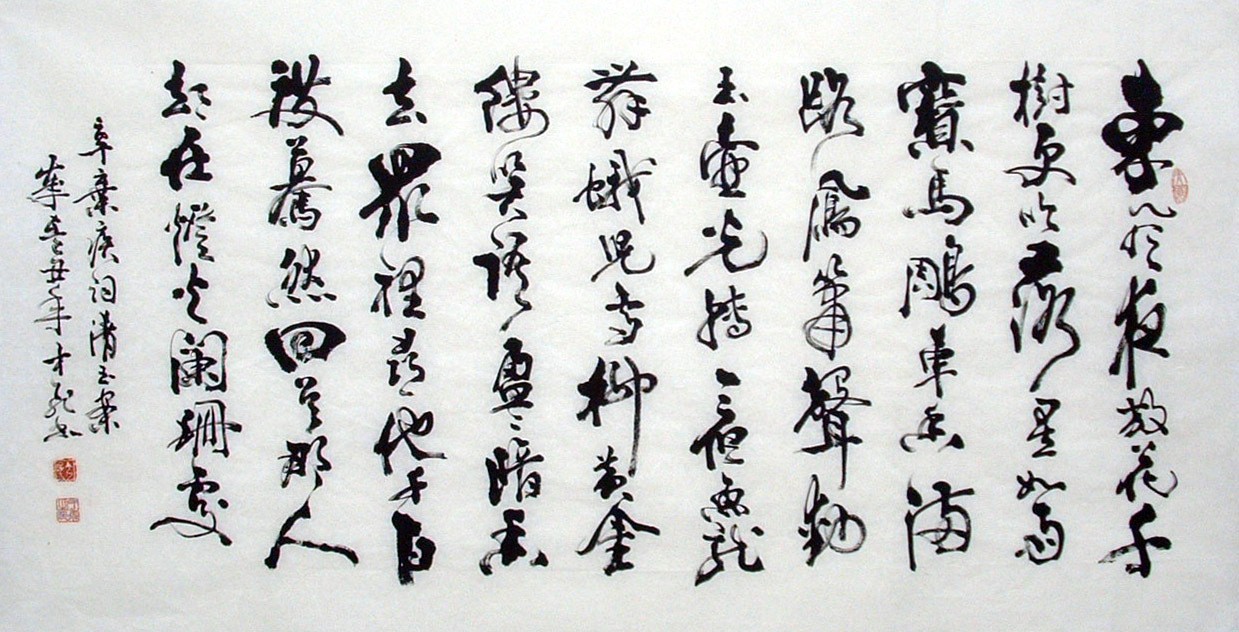 東風夜放花千
樹更吹落星如雨
寶馬鵰車香滿
路鳳簫聲動
玉壺光轉一夜魚龍
舞蛾兒雪柳黃金
縷笑語盈〻暗香
去眾裡尋他千百
度驀然回首那人
却在燈火闌珊處
辛棄疾詞清玉案
己丑年